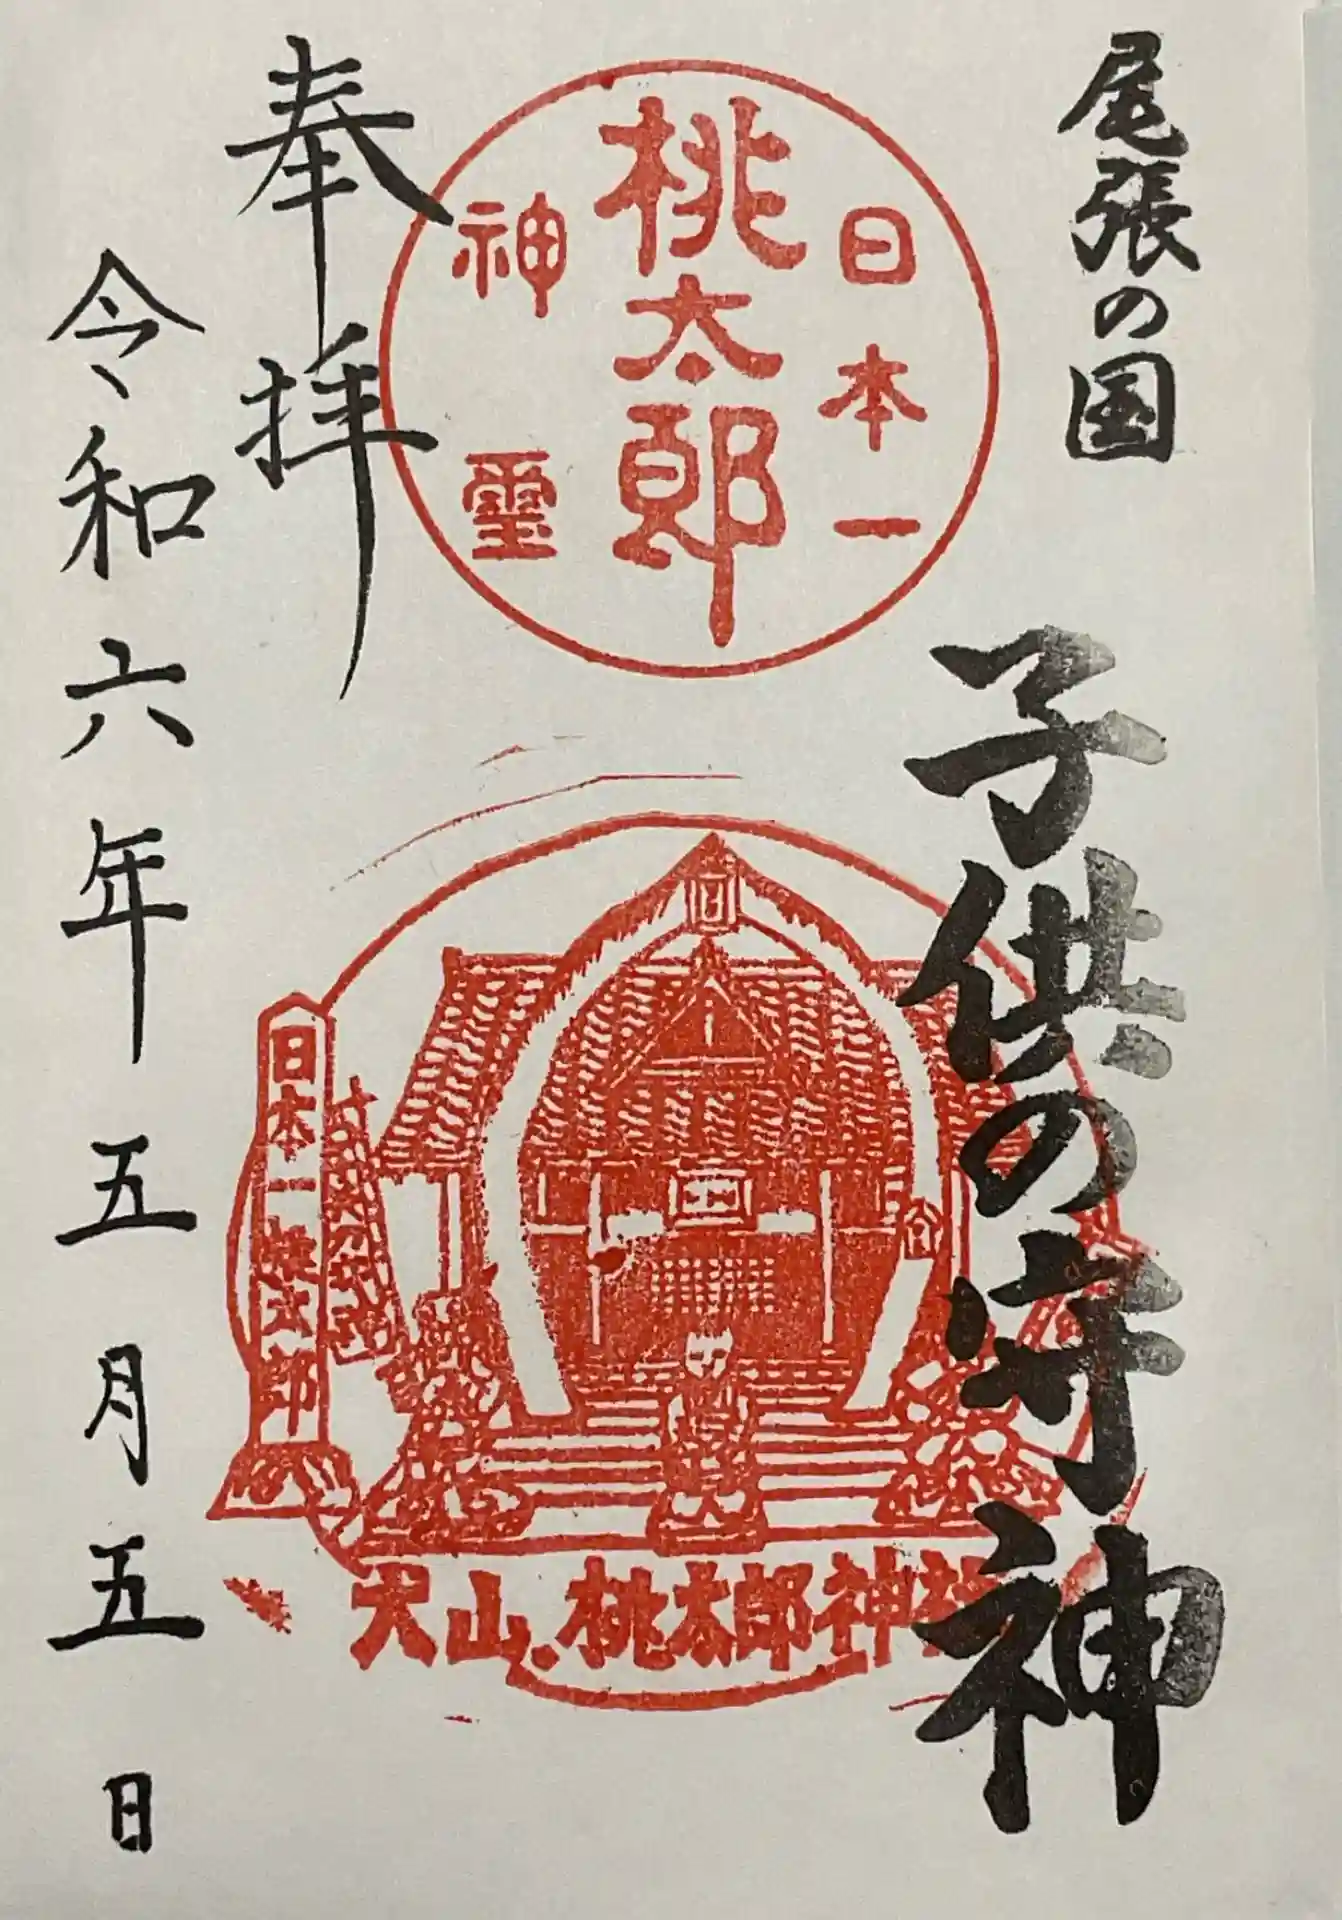 尾張の国
子供の守神
日本一
桃太郎
神霊
奉拝
令和六年五月五日
日本一桃太郎
犬山、桃太郎神社